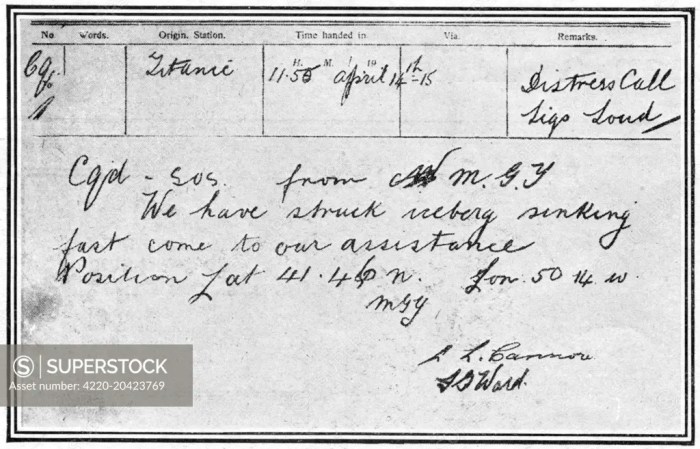 No Words. Origin. Station. Time handed in Via. Remarks.
H. M. 19
Cqd Titanic 11.55 April 14th-15 Distress Call
Sigs Loud
Cqd - SOS. from M.G.Y
We have struck iceberg sinking
fast come to our assistance
Position Lat 41.46 n. Lon. 50 14 w.
MGY
SUPERSTOCK
Asset number: 4220-20423769
L. Cannon
Ward.